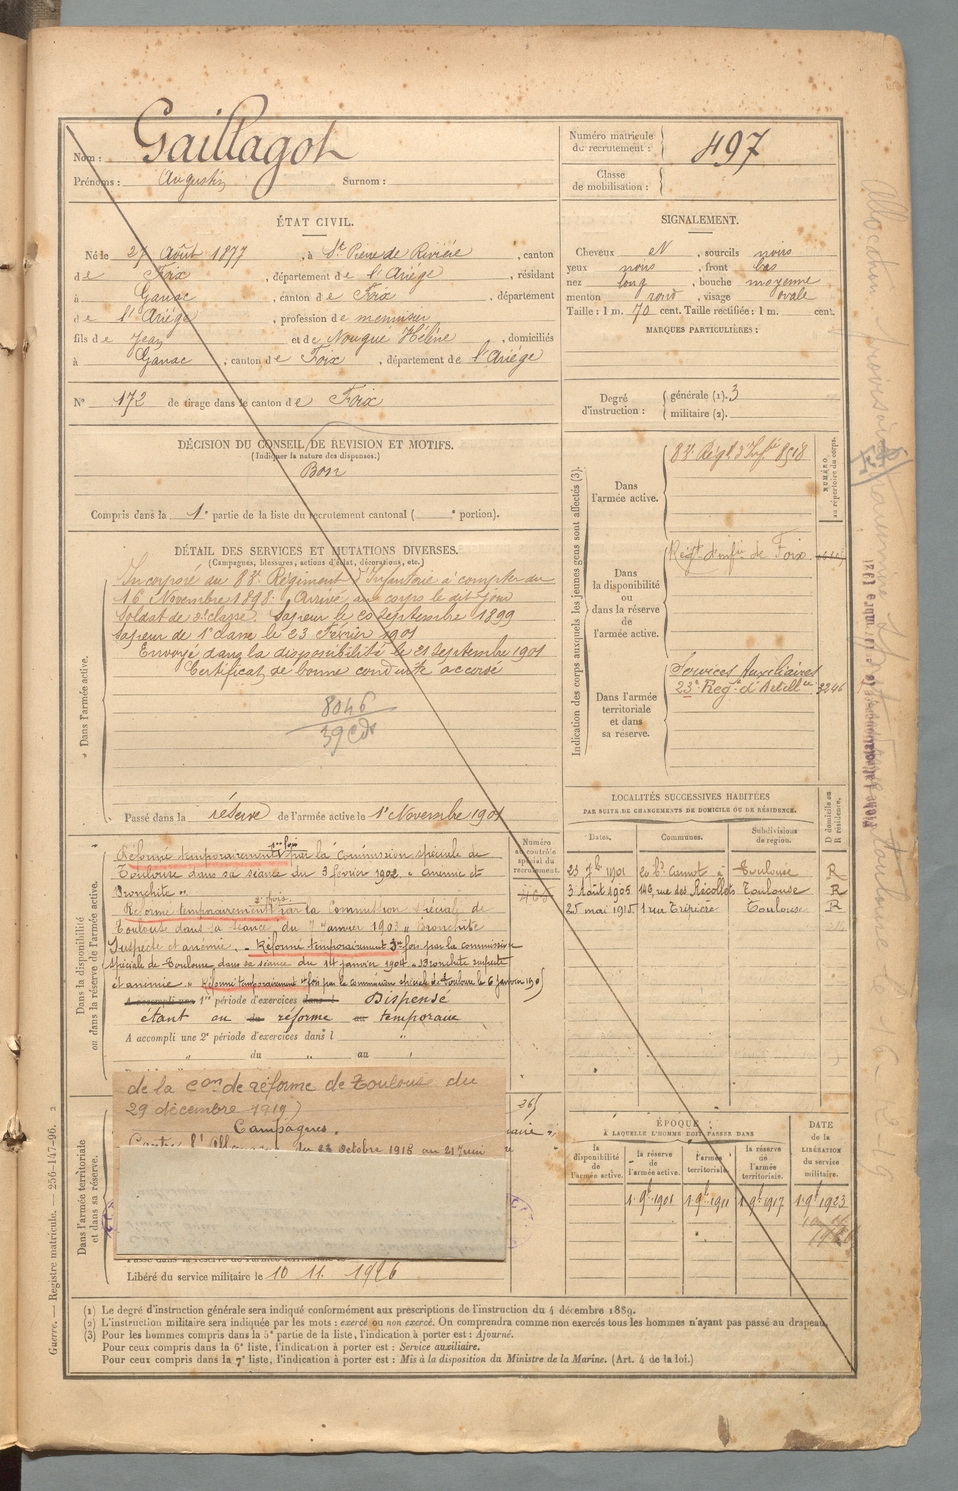 Nom : Gaillagot
Prénoms : Augustin Surnom :
Numéro matricule du recrutement : 497
Classe de mobilisation :
ÉTAT CIVIL.
Né le 27 Août 1877, à St Pierre de Rivière, canton
de Foix, département de l'Ariège, résidant
à Ganac, canton de Foix, département
de l'Ariège, profession de menuisier
fils de Jean et de Nougue Hélène, domiciliés
à Ganac, canton de Foix, département de l'Ariège
N° 172 de tirage dans le canton de Foix
SIGNALEMENT.
Cheveux et N, sourcils noirs
yeux noirs, front bas
nez long, bouche moyenne
menton rond, visage ovale
Taille : 1 m. 70 cent. Taille rectifiée : 1 m. cent.
MARQUES PARTICULIÈRES :
Degré d'instruction : générale (1). 3
militaire (2).
DÉCISION DU CONSEIL DE REVISION ET MOTIFS.
(Indiquer la nature des dispenses.)
Bon
Compris dans la 1e partie de la liste du recrutement cantonal ( e portion).
DÉTAIL DES SERVICES ET MUTATIONS DIVERSES.
(Campagnes, blessures, actions d'éclat, décorations, etc.)
Dans l'armée active.
Incorporé au 83e Régiment d'Infanterie à compter du
16 Novembre 1898. Arrivé au corps le dit jour
Soldat de 2e classe. Sapeur le 20 septembre 1899
Sapeur de 1e classe le 23 Février 1901
Envoyé dans la disponibilité le 21 septembre 1901
Certificat de bonne conduite accordé
8046
Passé dans la réserve de l'armée active le 1er Novembre 1901
Indication des corps auxquels les jeunes gens sont affectés (3).
NUMÉRO au répertoire du corps.
Dans l'armée active.
83e Régt d'Infie 8518
Dans la disponibilité ou dans la réserve de l'armée active.
Régt d'infie de Foix
Dans l'armée territoriale et dans sa réserve.
Services Auxiliaires
23e Regt d'Artillie 3246
LOCALITÉS SUCCESSIVES HABITÉES
PAR SUITE DE CHANGEMENTS DE DOMICILE OU DE RÉSIDENCE.
Dates. Communes. Subdivisions de région. D domicile ou R résidence.
23 7bre 1901 20 Bd Carnot Toulouse R
3 Août 1905 146, rue des Récollets Toulouse R
25 mai 1915 1 rue Tripière Toulouse R
Dans la disponibilité ou dans la réserve de l'armée active.
Numéro au contrôle spécial du recrutement.
Réformé temporairement 1ere fois par la commission spéciale de
Toulouse dans sa séance du 3 février 1902 " anémie et
Bronchite "
Réformé temporairement 2e fois par la Commission Spéciale de
Toulouse dans sa séance du 7 Janvier 1903 " Bronchite
Suspecte et anémie. " Réformé temporairement 3e fois par la commission
spéciale de Toulouse, dans sa séance du 14 janvier 1904 " Bronchite suspecte
et anémie " Réformé temporairement fois par la Commission spéciale de Toulouse le 6 janvier 190
A accompli une 1re période d'exercices dans l Dispensé
étant au du réforme au temporaire
A accompli une 2e période d'exercices dans l
du " au
de la Con de réforme de Toulouse du
29 décembre 1919)
Campagnes.
du 23 Octobre 1915 au 21 Juin
Dans l'armée territoriale et dans sa réserve.
Libéré du service militaire le 10 11. 1926
ÉPOQUE
À LAQUELLE L'HOMME DOIT PASSER DANS
la disponibilité de l'armée active. la réserve de l'armée active. l'armée territoriale. la réserve de l'armée territoriale.
DATE de la LIBÉRATION du service militaire.
1. 9bre 1901 1. 9bre 1911 1. 9bre 1917 1. 9bre 1923
(1) Le degré d'instruction générale sera indiqué conformément aux prescriptions de l'instruction du 4 décembre 1889.
(2) L'instruction militaire sera indiquée par les mots : exercé ou non exercé. On comprendra comme non exercés tous les hommes n'ayant pas passé au drapeau.
(3) Pour les hommes compris dans la 5e partie de la liste, l'indication à porter est : Ajourné.
Pour ceux compris dans la 6e liste, l'indication à porter est : Service auxiliaire.
Pour ceux compris dans la 7e liste, l'indication à porter est : Mis à la disposition du Ministre de la Marine. (Art. 4 de la loi.)
Guerre. — Registre matricule. — 256-147-96. 2